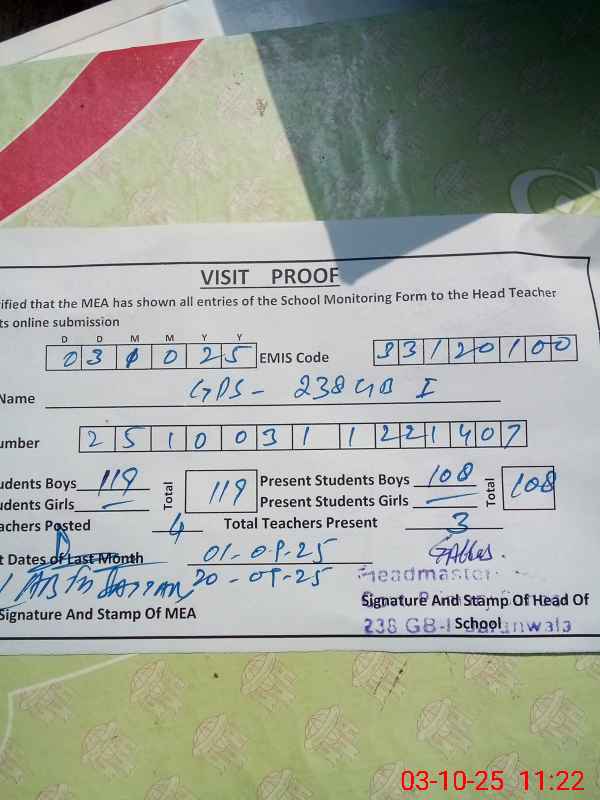 VISIT PROOF
ified that the MEA has shown all entries of the School Monitoring Form to the Head Teacher
ts online submission
D D M M Y Y
0 3 1 0 2 5 EMIS Code 3 3 1 2 0 1 0 0
Name GPS - 238 GB I
umber 2 5 1 0 0 3 1 1 2 2 1 4 0 7
udents Boys 119 Total 119 Present Students Boys 108 Total 108
udents Girls — Present Students Girls —
achers Posted 4 Total Teachers Present 3
t Dates of Last Month 01-09-25
20-09-25
Headmaster
Signature And Stamp Of MEA
Signature And Stamp Of Head Of
School
238 GB-I
03-10-25 11:22